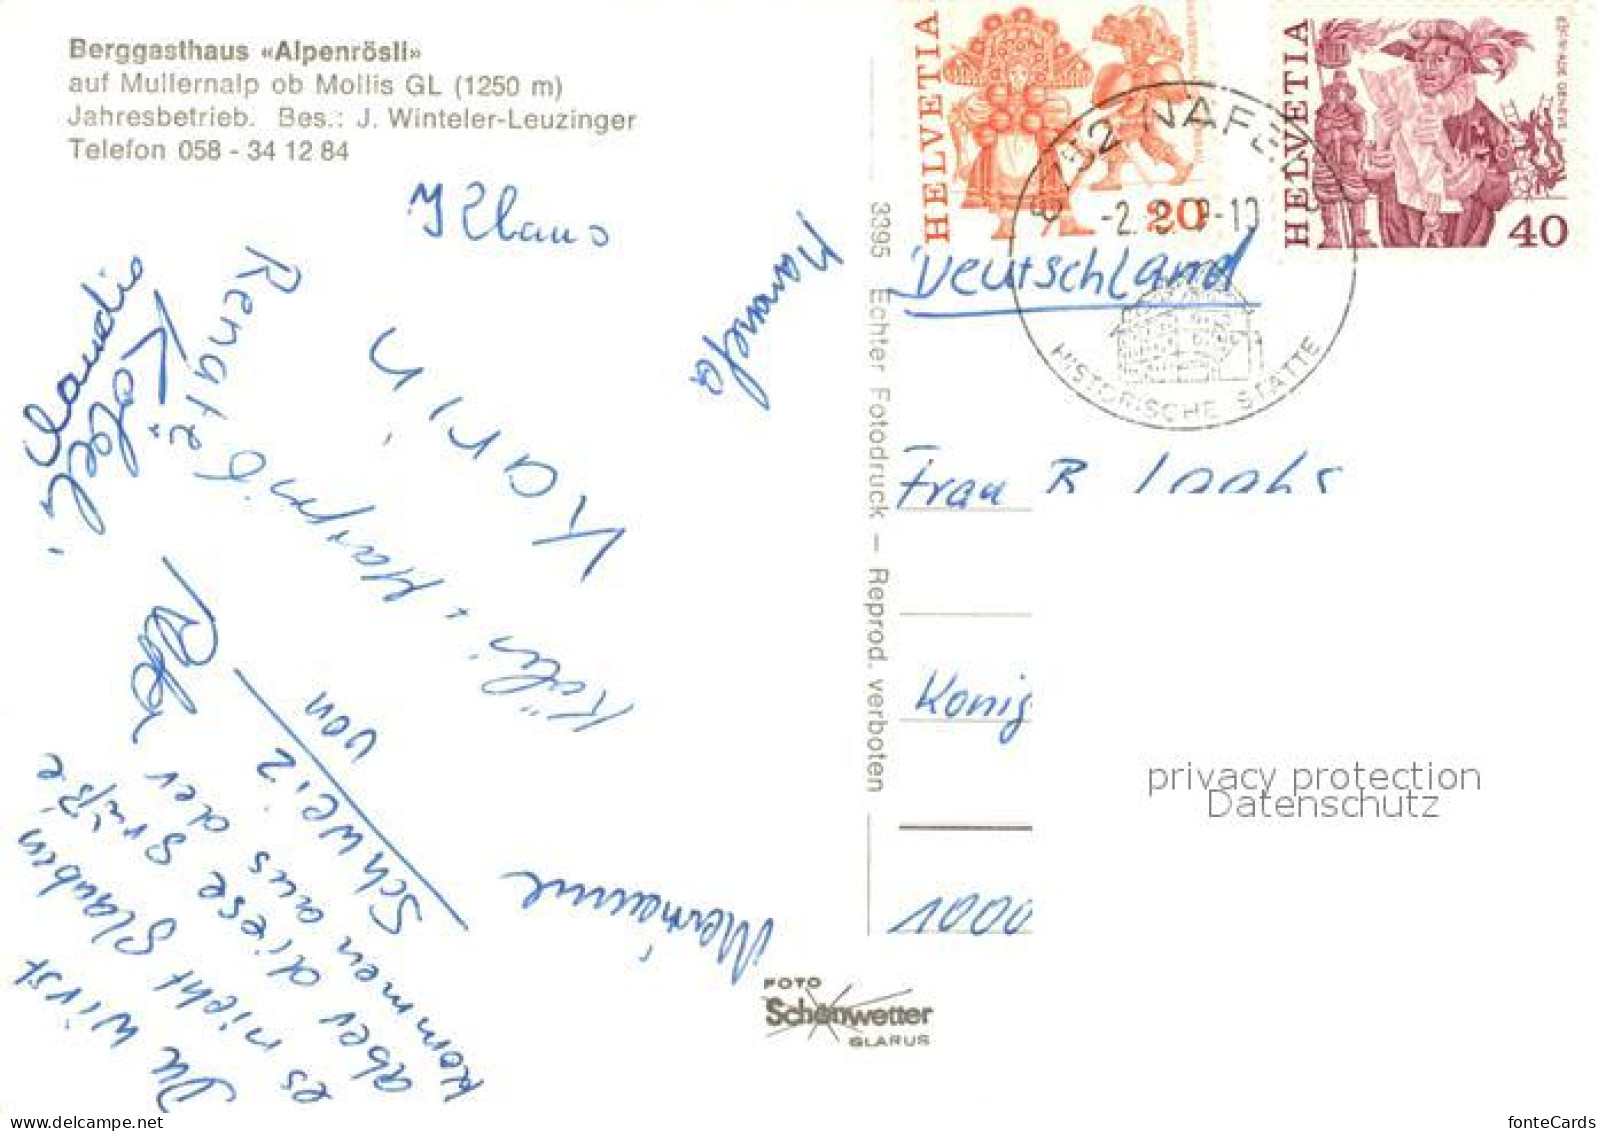 Berggasthaus «Alpenrösli»
auf Mullernalp ob Mollis GL (1250 m)
Jahresbetrieb. Bes.: J. Winteler-Leuzinger
Telefon 058 - 34 12 84
Klaus
Manuela
Claudio
Renate
Karin
Marianne
Du wirst
es nicht glauben
aber diese Grüße
kommen aus der
Schweiz
von
3395 Echter Fotodruck — Reprod. verboten
FOTO
Schönwetter
GLARUS
HELVETIA
20
HELVETIA
40
ESCALADE GENÈVE
8752 NÄFELS
HISTORISCHE STÄTTE
Deutschland
Frau R
König
1000
privacy protection
Datenschutz
fonteCards